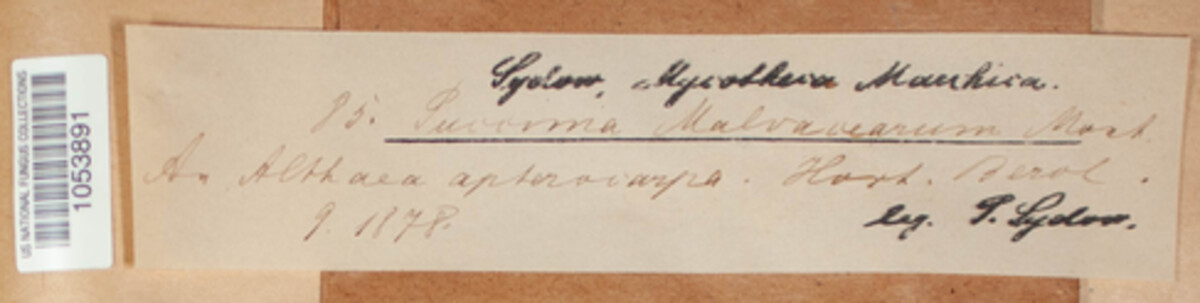 US NATIONAL FUNGUS COLLECTIONS
1053891
Sydow, Mycotheca Marchica.
85. Puccinia Malvacearum Mont.
An Althaea apterocarpa. Hort. Berol.
9. 1878.
leg. P. Sydow.